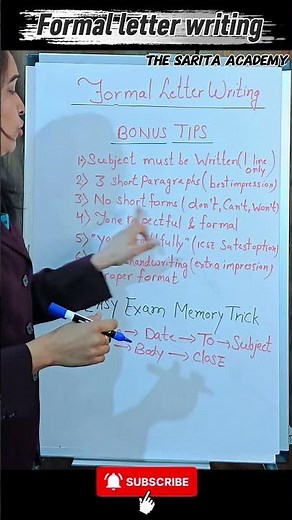 Formal letter writing
THE SARITA ACADEMY
Formal Letter Writing
BONUS TIPS
1) Subject must be Written (1 line only)
2) 3 Short Paragraphs (best impression)
3) No short forms (don't, Can't, Won't)
4) Tone respectful & formal
5) (ICSE Safest option)
handwriting (extra impression)
format
Exam Memory Trick
→ Date → To → Subject
→ Body → Close
SUBSCRIBE